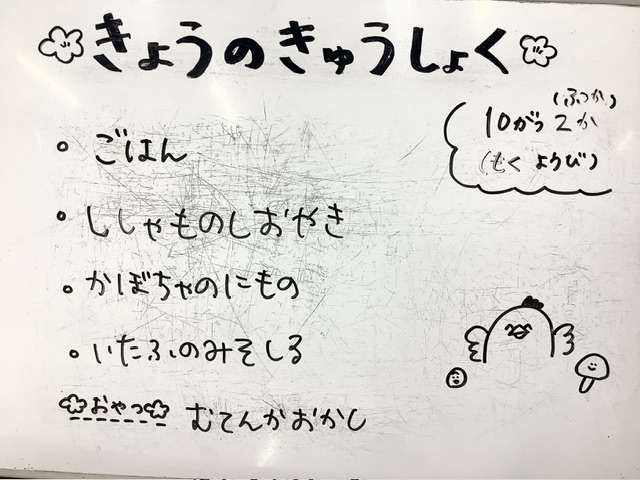 きょうのきゅうしょく
(ふつか)
10がつ2か
(もくようび)
ごはん
ししゃものしおやき
かぼちゃのにもの
いたふのみそしる
おやつ むてんかおかし